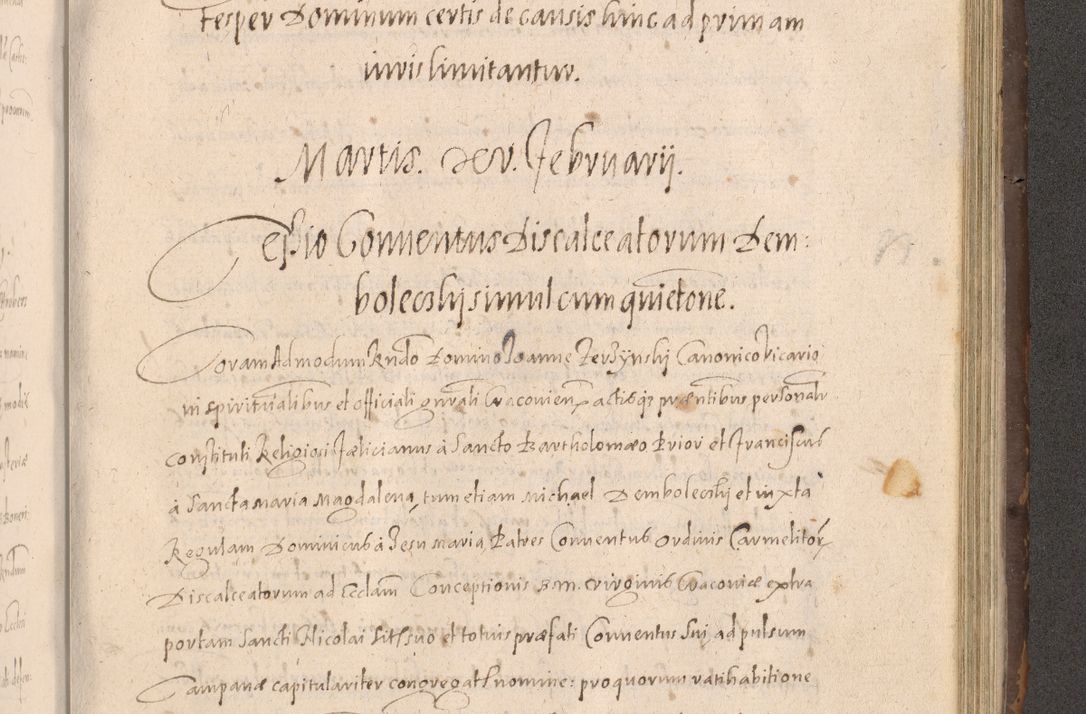 tesper Dominum certis de causis hinc ad primam
iuris limitantur.
Martis. XV. Februarij.
Cessio Conuentus Discalceatorum Dem:
boleczkij simul cum quietone.
Coram Admodum Rndo Domino Joanne Zerzynskj Canonico Vicario
in spiritualibus et officiali gnrali Cracouien actisq3 præsentibus personalr
constituti Religiosi Fælicianus à Sancto Bartholomæo Prior et Franciscus
à Sancta Maria Magdalena, tum etiam Michael Demboleczkij et iuxta
Regulam Dominicus à Jesu Maria, Patres Conuentus Ordinis Carmelitor
Discalceatorum ad Ecclam Conceptionis B. M. Virginis Cracouiæ extra
portam Sancti Nicolai sit suo et totius præfati Conuentus Sui ad pulsum
Campanæ capitulariter congregat nomine: pro quorum ratihabitione